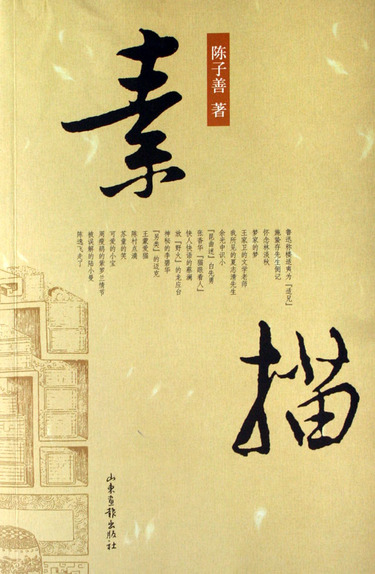 素描
陈子善 著
鲁迅称楼适夷为「适兄」
施蛰存先生记
怀念林淡秋
梦家的梦
王家卫的文学老师
我所见的夏志清先生
余光中识小
「昆曲迷」白先勇
张香华「猫跟着人」
快人快语的蔡澜
放「野火」的龙应台
神秘的李碧华
「另类」的迈克
王蒙爱猫
陈村点滴
苏童的笑
可爱的小宝
周瘦鹃的紫罗兰情节
被误解的陆小曼
陈逸飞走了
山东画报出版社